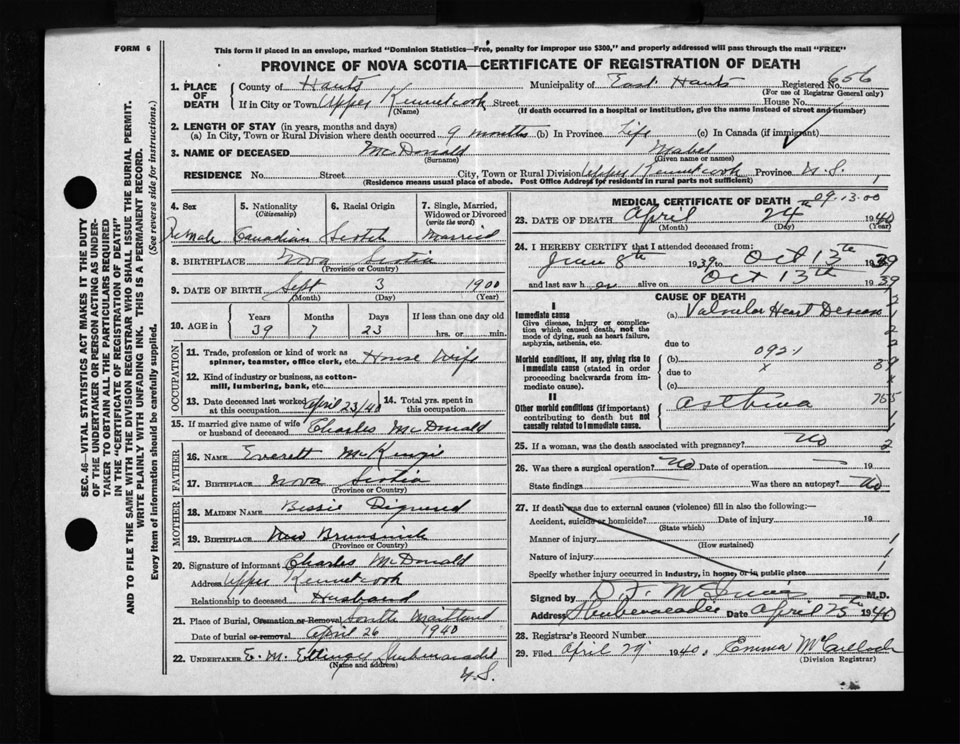 FORM 6
This form if placed in an envelope, marked "Dominion Statistics—Free, penalty for improper use $300," and properly addressed will pass through the mail "FREE"
PROVINCE OF NOVA SCOTIA—CERTIFICATE OF REGISTRATION OF DEATH
SEC. 46—VITAL STATISTICS ACT MAKES IT THE DUTY
OF THE UNDERTAKER OR PERSON ACTING AS UNDER-
TAKER TO OBTAIN ALL THE PARTICULARS REQUIRED
IN THE "CERTIFICATE OF REGISTRATION OF DEATH"
AND TO FILE THE SAME WITH THE DIVISION REGISTRAR WHO SHALL ISSUE THE BURIAL PERMIT.
WRITE PLAINLY WITH UNFADING INK. THIS IS A PERMANENT RECORD.
Every item of information should be carefully supplied. (See reverse side for instructions.)
1. PLACE OF DEATH County of Hants Municipality of East Hants Registered No. 656
(For use of Registrar General only)
If in City or Town Upper Kennetcook Street House No.
(Name) (If death occurred in a hospital or institution, give the name instead of street and number)
2. LENGTH OF STAY (in years, months and days)
(a) In City, Town or Rural Division where death occurred 9 months (b) In Province Life (c) In Canada (if immigrant)
3. NAME OF DECEASED McDonald Mabel
(Surname) (Given name or names)
RESIDENCE No. Street City, Town or Rural Division Upper Kennetcook Province N.S. 1
(Residence means usual place of abode. Post Office Address for residents in rural parts not sufficient)
4. Sex 5. Nationality (Citizenship) 6. Racial Origin 7. Single, Married, Widowed or Divorced (write the word)
Female Canadian Scotch Married
8. BIRTHPLACE Nova Scotia
(Province or Country)
9. DATE OF BIRTH Sept 3 1900
(Month) (Day) (Year)
10. AGE in Years Months Days If less than one day old
39 7 23 hrs. or min.
OCCUPATION
11. Trade, profession or kind of work as spinner, teamster, office clerk, etc. House Wife
12. Kind of industry or business, as cotton-mill, lumbering, bank, etc.
13. Date deceased last worked at this occupation April 23/40 14. Total yrs. spent in this occupation
15. If married give name of wife or husband of deceased Charles McDonald
FATHER
16. NAME Everett McKenzie
17. BIRTHPLACE Nova Scotia
(Province or Country)
MOTHER
18. MAIDEN NAME Bessie
19. BIRTHPLACE New Brunswick
(Province or Country)
20. Signature of informant Charles McDonald
Address Upper Kennetcook
Relationship to deceased Husband
21. Place of Burial, Cremation or Removal South Maitland
Date of burial or removal April 26 1940
22. UNDERTAKER E. M. Ettinger Shubenacadie
(Name and address)
N.S.
MEDICAL CERTIFICATE OF DEATH 09-13-00
23. DATE OF DEATH April 24th 1940
(Month) (Day) (Year)
24. I HEREBY CERTIFY that I attended deceased from:
June 8th 1939 to Oct 13th 1939
and last saw her alive on Oct 13th 1939
CAUSE OF DEATH
I
Immediate cause (a) Valvular Heart Disease
Give disease, injury or complication which caused death, not the mode of dying, such as heart failure, asphyxia, asthenia, etc.
due to
Morbid conditions, if any, giving rise to immediate cause (stated in order proceeding backwards from immediate cause).
(b) 092-1
due to x
(c)
II
Other morbid conditions (if important) contributing to death but not causally related to immediate cause. Asthma
25. If a woman, was the death associated with pregnancy? No 2
26. Was there a surgical operation? No Date of operation — 19
State findings Was there an autopsy? No
27. If death was due to external causes (violence) fill in also the following:—
Accident, suicide or homicide? Date of injury 19
(State which)
Manner of injury 1
(How sustained)
Nature of injury 1
Specify whether injury occurred in industry, in home, or in public place
Signed by M.D.
Address Shubenacadie Date April 25th 1940
28. Registrar's Record Number
29. Filed April 29 1940. Emma McCulloch
(Division Registrar)